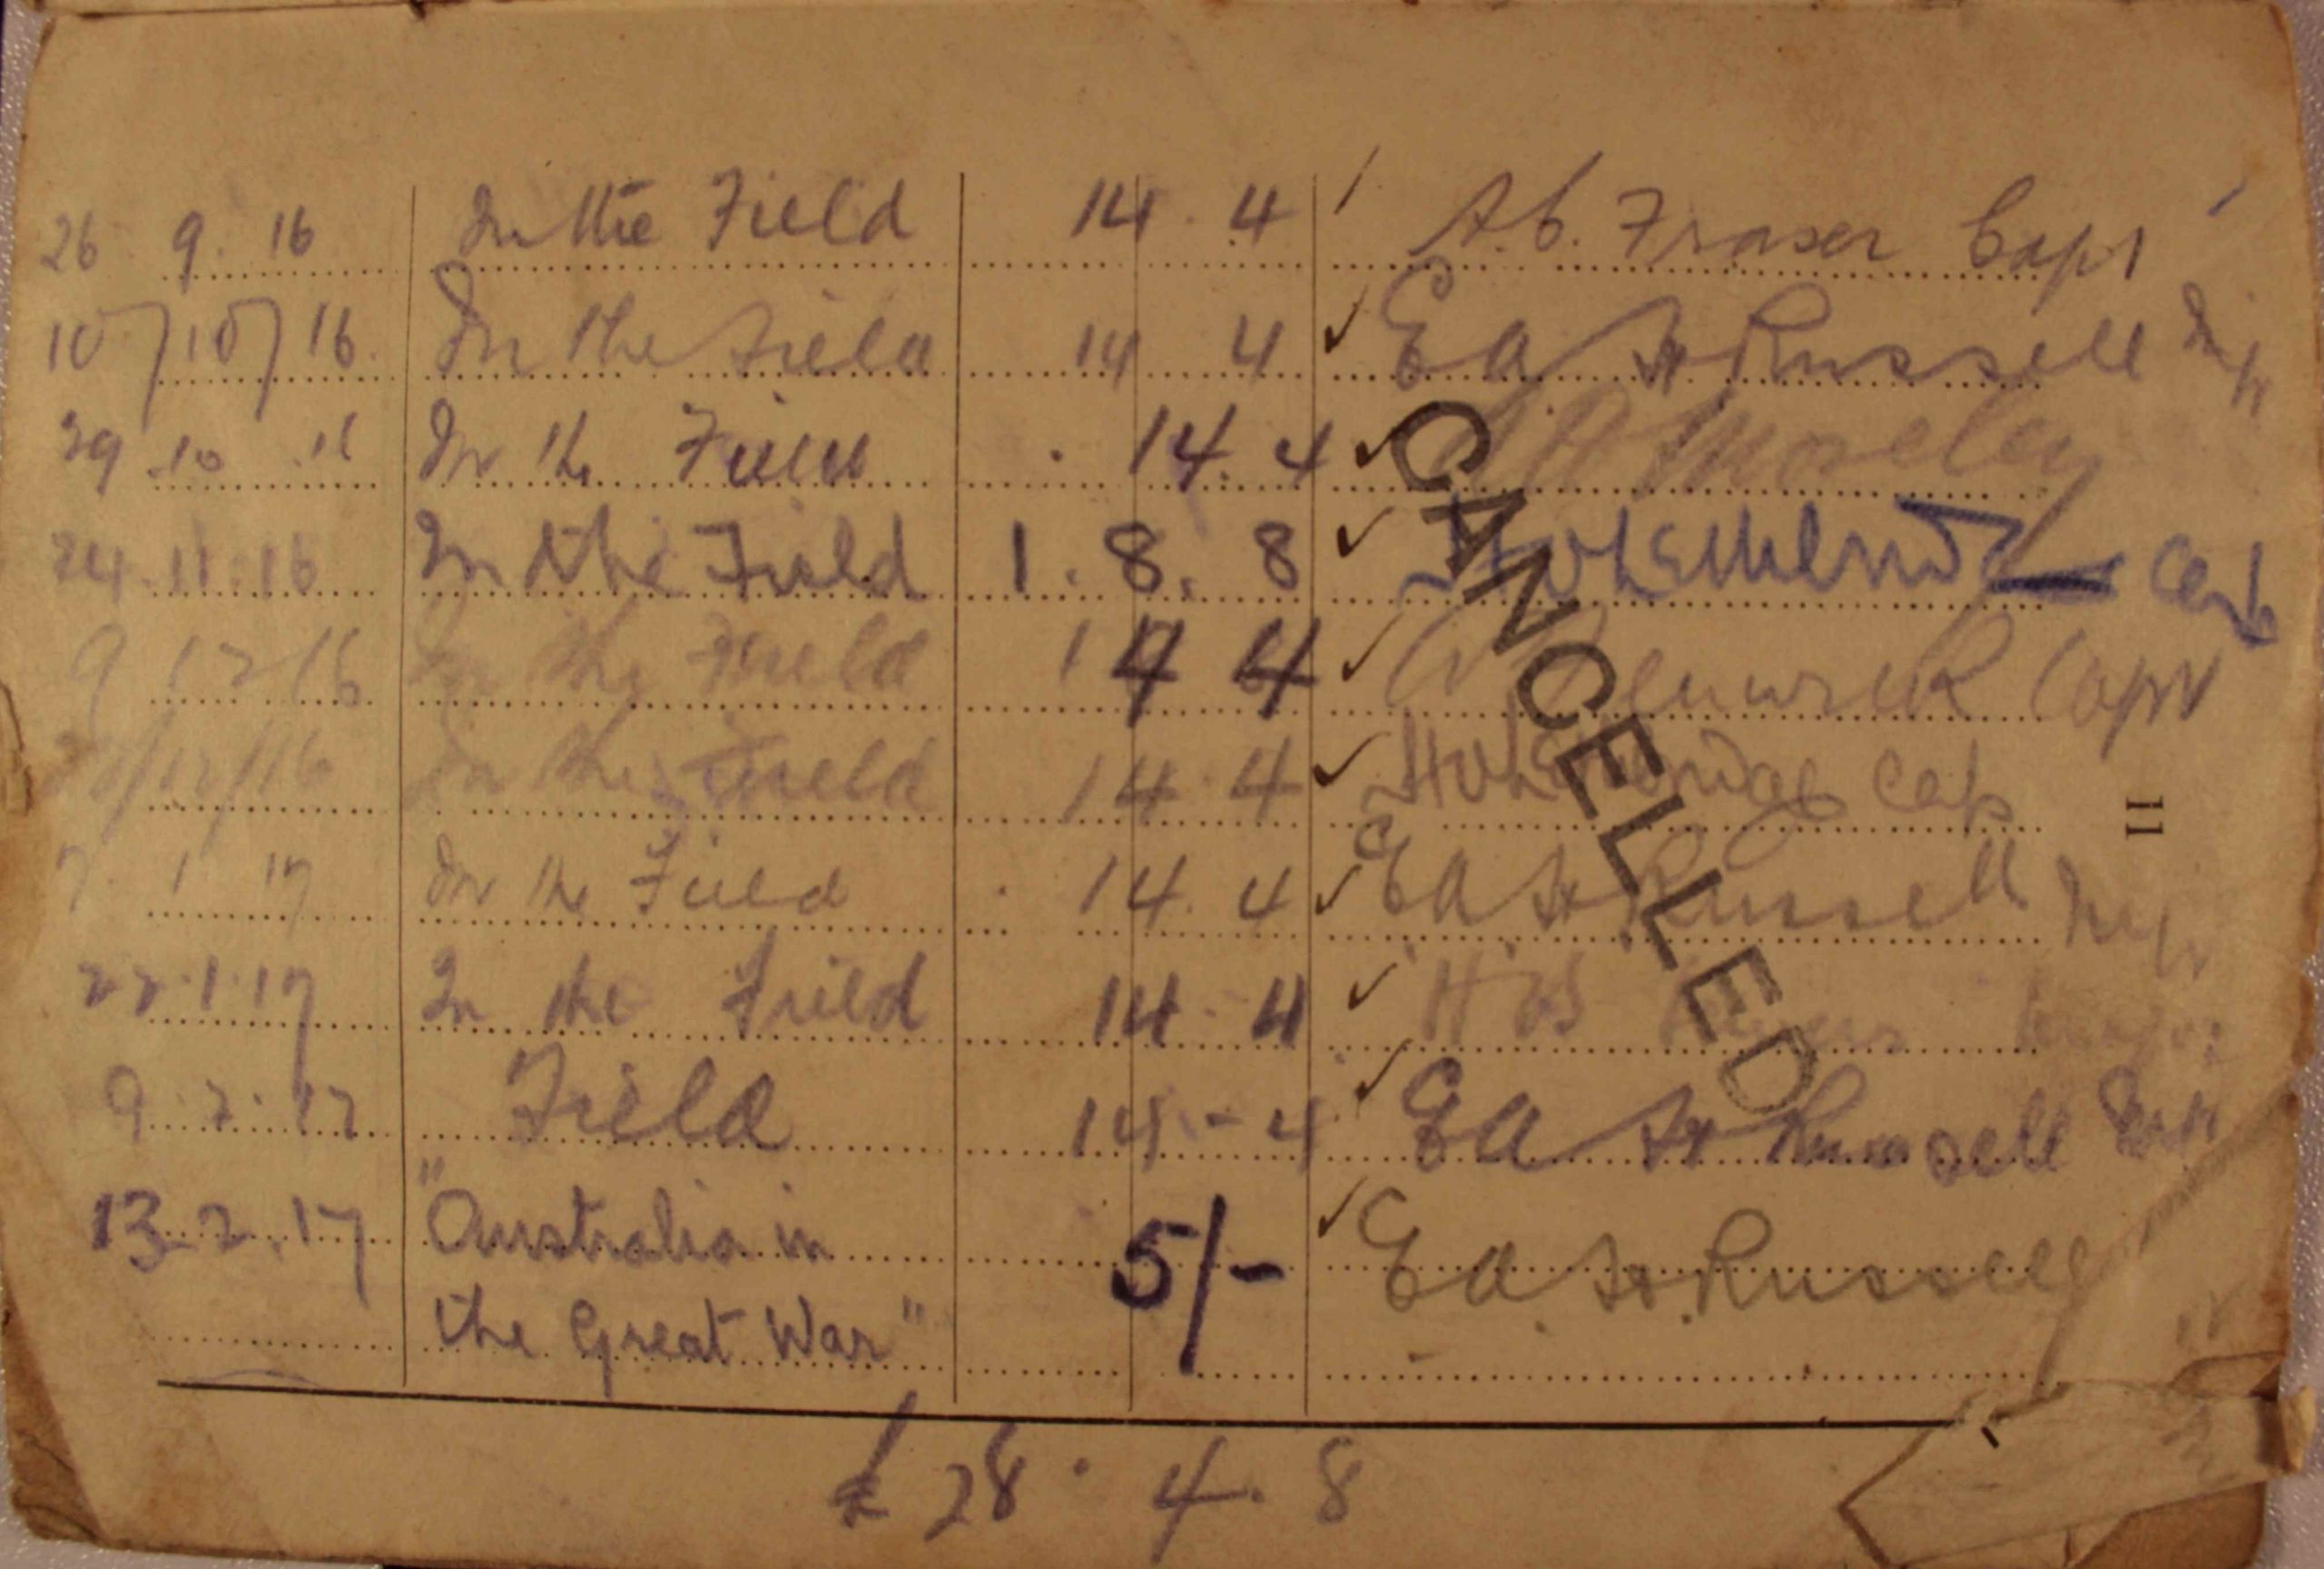 26 9. 16 In the Field 14. 4 A.C. Fraser Capt
10/10/16. In the Field 14 4 E A H Russell
29 10 16 In the Field 14. 4 Moseley
24. 11. 16 In the Field 1. 8. 8 Capt
9 12 16 In the Field 14 4 Capt
/12/16 In the Field 14. 4 Capt
7. 1 17 In the Field 14. 4 E A H Russell
22. 1. 17 In the Field 14. 4
9. 2. 17 Field 14 - 4 E A H Russell
13. 2. 17 "Australia in 5/- E A H Russell
the Great War"
£ 28. 4. 8
CANCELLED
11